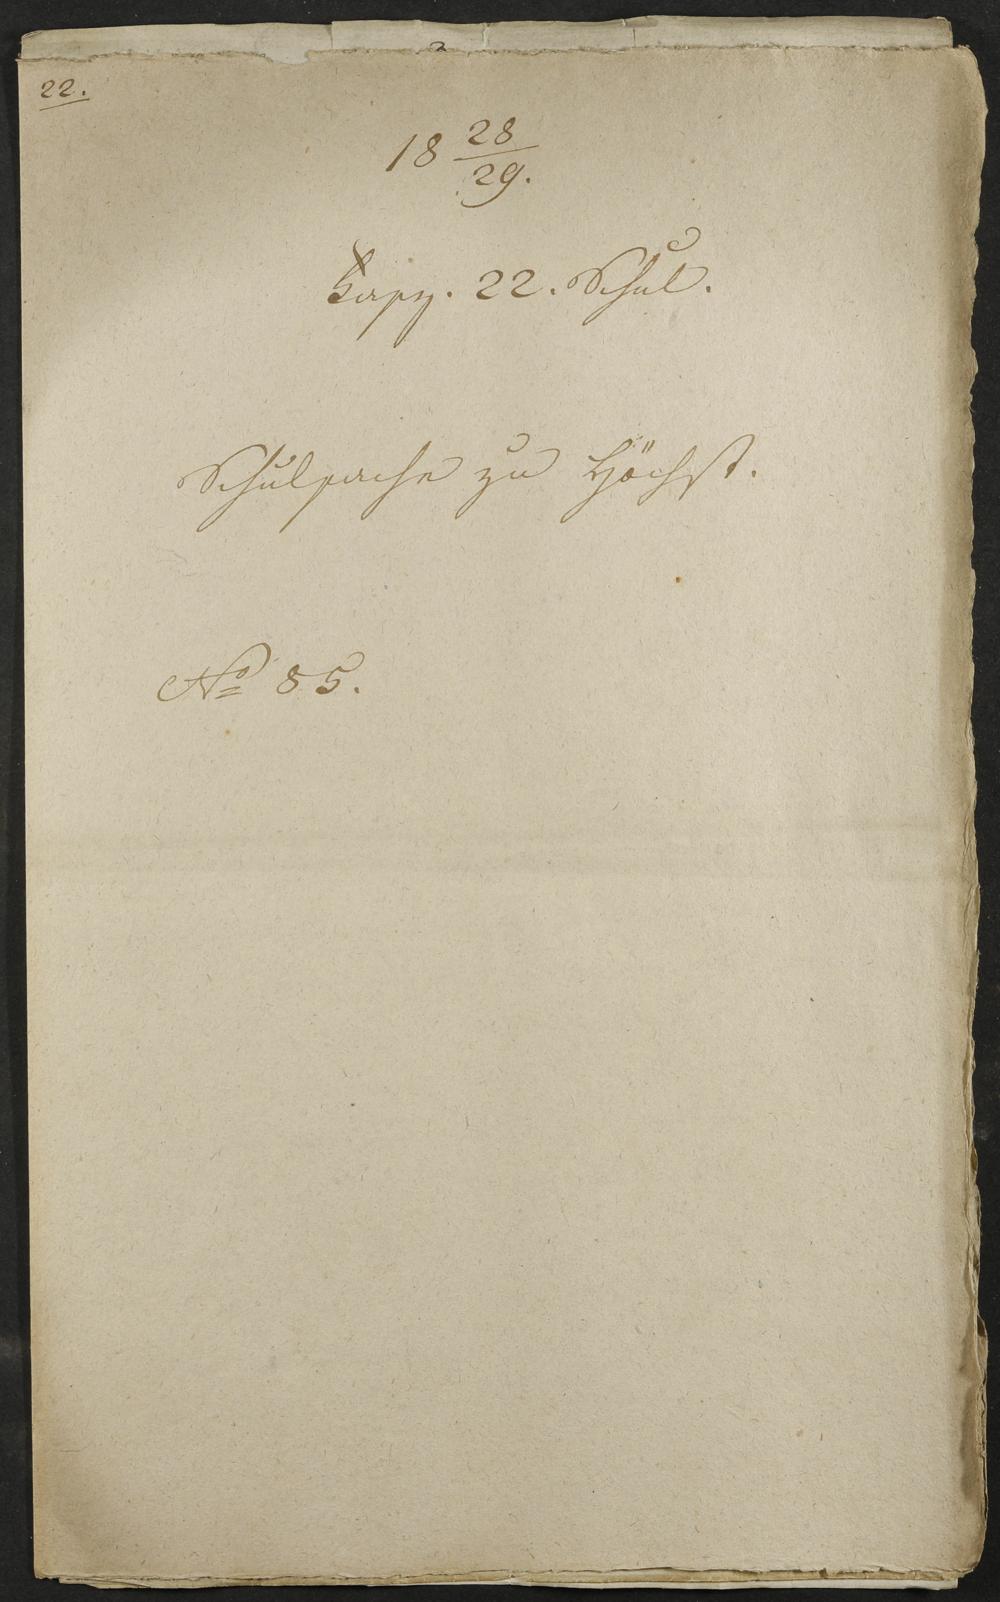 22.
18 28/29.
Fasz. 22. Schul.
Schulsache zu Höchst.
No 85.